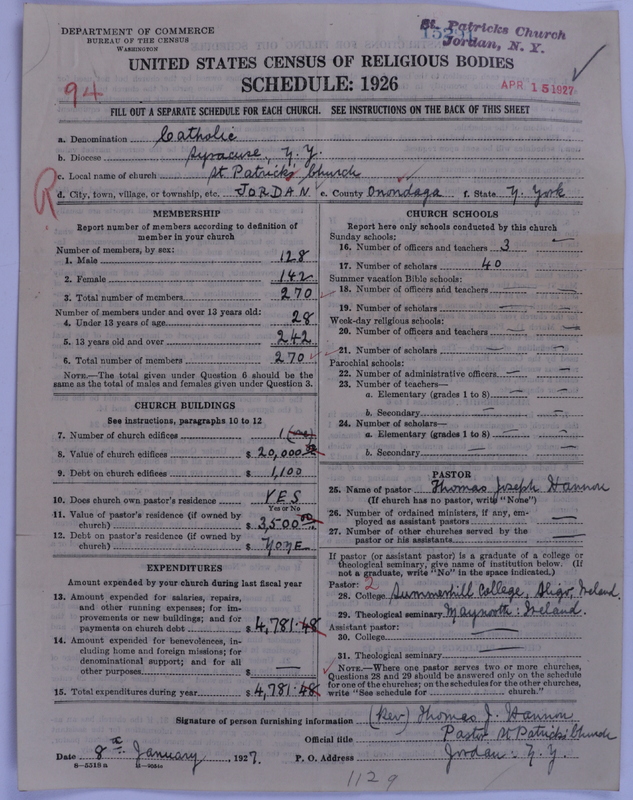 DEPARTMENT OF COMMERCE
BUREAU OF THE CENSUS
WASHINGTON
St. Patricks Church
Jordan, N. Y.
UNITED STATES CENSUS OF RELIGIOUS BODIES
SCHEDULE: 1926
94
APR 15 1927
FILL OUT A SEPARATE SCHEDULE FOR EACH CHURCH. SEE INSTRUCTIONS ON THE BACK OF THIS SHEET
a. Denomination Catholic
b. Diocese Syracuse, N. Y.
c. Local name of church St Patrick's Church
R
d. City, town, village, or township, etc. JORDAN e. County Onondaga f. State N. York
MEMBERSHIP
Report number of members according to definition of
member in your church
Number of members, by sex:
1. Male 128
2. Female 142
3. Total number of members 270
Number of members under and over 13 years old:
4. Under 13 years of age 28
5. 13 years old and over 242
6. Total number of members 270
NOTE.—The total given under Question 6 should be
same as the total of males and females given under Question 3.
CHURCH BUILDINGS
See instructions, paragraphs 10 to 12
7. Number of church edifices 1 (one)
8. Value of church edifices $ 20,000
9. Debt on church edifices $ 1,100
10. Does church own pastor's residence YES
Yes or No
11. Value of pastor's residence (if owned by
church) $ 3,500 00
12. Debt on pastor's residence (if owned by
church) $ NONE
EXPENDITURES
Amount expended by your church during last fiscal year
13. Amount expended for salaries, repairs,
and other running expenses; for im-
provements or new buildings; and for
payments on church debt $ 4,781.48
14. Amount expended for benevolences, in-
cluding home and foreign missions; for
denominational support; and for all
other purposes $ —
15. Total expenditures during year $ 4,781.48
CHURCH SCHOOLS
Report here only schools conducted by this church
Sunday schools:
16. Number of officers and teachers 3 —
17. Number of scholars 40
Summer vacation Bible schools:
18. Number of officers and teachers — —
19. Number of scholars — —
Week-day religious schools:
20. Number of officers and teachers — —
21. Number of scholars — —
Parochial schools:
22. Number of administrative officers — —
23. Number of teachers—
a. Elementary (grades 1 to 8) — —
b. Secondary — —
24. Number of scholars—
a. Elementary (grades 1 to 8) — —
b. Secondary — —
PASTOR
25. Name of pastor Thomas Joseph Hannon
(If church has no pastor, write "None")
26. Number of ordained ministers, if any, em-
ployed as assistant pastors —
27. Number of other churches served by the
pastor or his assistants —
If pastor (or assistant pastor) is a graduate of a college or
theological seminary, give name of institution below. (If
not a graduate, write "No" in the space indicated.)
Pastor: 2
28. College Summerhill College, Sligo, Ireland.
29. Theological seminary Maynooth: Ireland.
Assistant pastor:
30. College —
31. Theological seminary —
NOTE.—Where one pastor serves two or more churches,
Questions 28 and 29 should be answered only on the schedule
for one of the churches; on the schedules for the other churches,
write "See schedule for church."
Signature of person furnishing information (Rev) Thomas J. Hannon
Official title Pastor St Patrick's Church
Date 8th January, 1927. P. O. Address Jordan: N. Y.
8—5518 a
1129